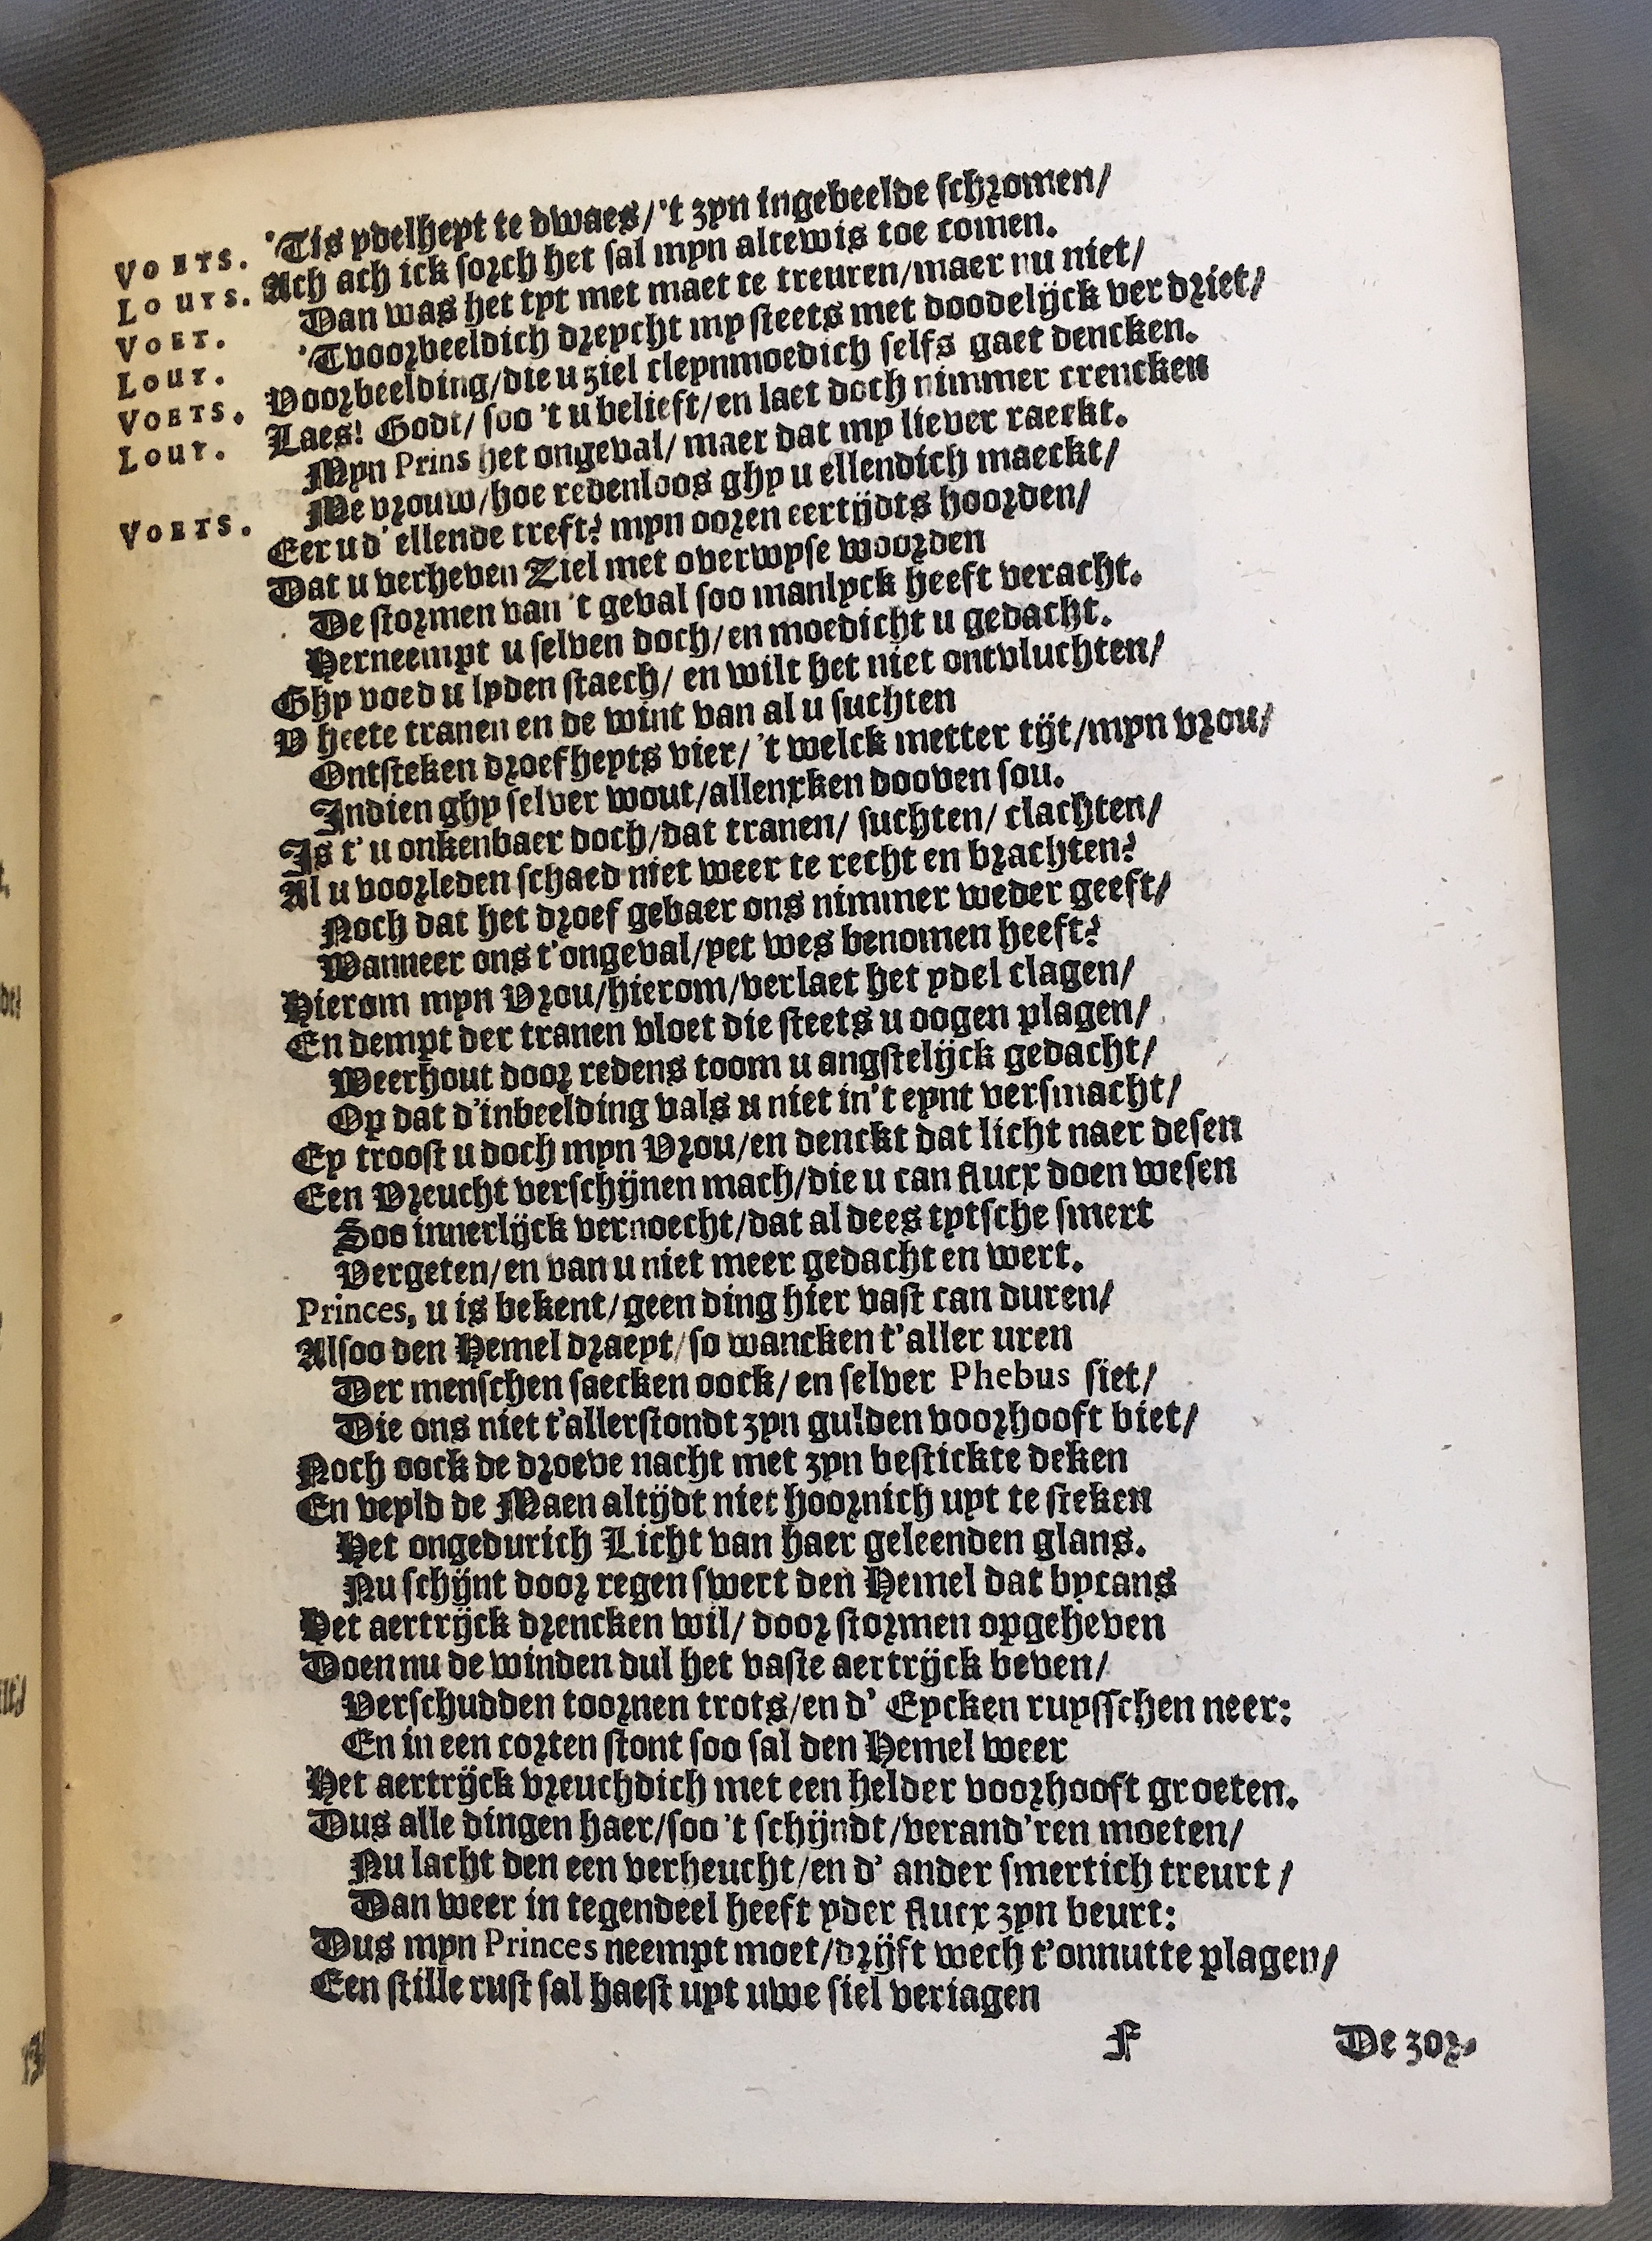 VOETS. 'Tis ydelheyt te dwaes/'t zyn ingebeelde schromen/
LOUYS. Ach ach ick sorch het sal myn altewis toe comen.
VOET. Dan was het tyt met maet te treuren/maer nu niet/
LOUY. 'Tvoorbeeldich dreycht my steets met doodelijck verdriet/
VOETS. Voorbeelding/die u ziel cleynmoedich selfs gaet dencken.
LOUY. Laes! Godt/ soo 't u belieft/en laet doch nimmer crencken
Myn Prins het ongeval/ maer dat my liever raeckt.
VOETS. Me vrouw/hoe redenloos ghy u ellendich maeckt/
Eer u d' ellende treft? myn ooren eertijdts hoorden/
Dat u verheven Ziel met overwyse woorden
De stormen van 't geval soo manlyck heeft veracht.
Herneempt u selven doch/en moedicht u gedacht.
Ghy voed u lyden staech/ en wilt het niet ontvluchten/
V heete tranen en de wint van al u suchten
Ontsteken droefheyts vier/ 't welck metter tijt/myn vrou/
Indien ghy selver wout/allenxken dooven sou.
Is t' u onkenbaer doch/dat tranen/ suchten/ clachten/
Al u voorleden schaed niet weer te recht en brachten?
Noch dat het droef gebaer ons nimmer weder geeft/
Wanneer ons t'ongeval/yet wes benomen heeft?
Hierom myn Vrou/hierom/verlaet het ydel clagen/
En dempt der tranen vloet die steets u oogen plagen/
Weerhout door redens toom u angstelijck gedacht/
Op dat d'inbeelding vals u niet in't eynt versmacht/
Ey troost u doch myn Vrou/en denckt dat licht naer desen
Een Vreucht verschijnen mach/die u can flucx doen wesen
Soo innerlijck vernoecht/dat al dees tytsche smert
Vergeten/en van u niet meer gedacht en wert.
Princes, u is bekent/geen ding hier vast can duren/
Alsoo den Hemel draeyt/so wancken t'aller uren
Der menschen saecken oock/ en selver Phebus siet/
Die ons niet t'allerstondt zyn gulden voorhooft biet/
Noch oock de droeve nacht met zyn bestickte deken
En veyld de Maen altijdt niet hoornich uyt te steken
Het ongedurich Licht van haer geleenden glans.
Nu schijnt door regen swert den Hemel dat bycans
Het aertrijck drencken wil/ door stormen opgeheven
Doen nu de winden dul het vaste aertrijck beven/
Verschudden toornen trots/en d' Eycken ruysschen neer:
En in een corten stont soo sal den Hemel weer
Het aertrijck vreuchdich met een helder voorhooft groeten.
Dus alle dingen haer/soo 't schijndt/verand'ren moeten/
Nu lacht den een verheucht/en d' ander smertich treurt/
Dan weer in tegendeel heeft yder flucx zyn beurt:
Dus myn Princes neempt moet/drijft wech t'onnutte plagen/
Een stille rust sal haest uyt uwe siel veriagen
F De zor-